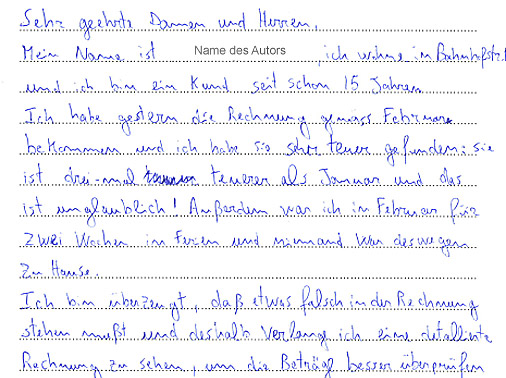 Sehr geehrte Damen und Herren,
Mein Name ist Name des Autors, ich wohne in Bahnhofstr.
und ich bin ein Kund seit schon 15 Jahren
Ich habe gestern die Rechnung gemäss Februar
bekommen und ich habe sie sehr teuer gefunden: sie
ist drei-mal teuerer als Januar und das
ist unglaublich! Außerdem war ich in Februar für
zwei Wochen in Ferien und niemand war deswegen
zu Hause.
Ich bin überzeugt, daß etwas falsch in der Rechnung
stehen mußt und deshalb verlange ich eine detallierte
Rechnung zu sehen, um die Beträge besser überprüfen